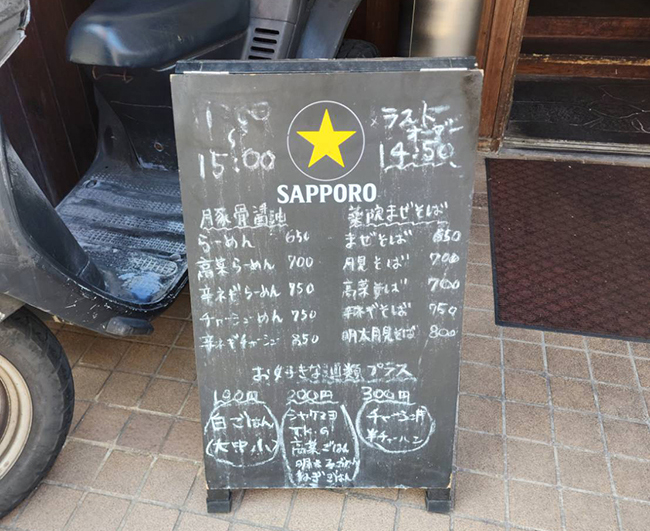 15:00
ラストオーダー
14:50
SAPPORO
豚骨醤油
らーめん 650
高菜らーめん 700
辛ネギらーめん 750
チャーシューめん 750
辛ネギチャーシュー 850
薬院まぜそば
まぜそば 650
月見そば 700
高菜そば 700
辛ネギそば 750
明太月見そば 800
お好きな麺類プラス
100円
白ごはん
(大中小)
200円
シャケマヨ
T.K.G
高菜ごはん
明太子ごはん
ねぎごはん
300円
チャーシュー丼
半チャーハン